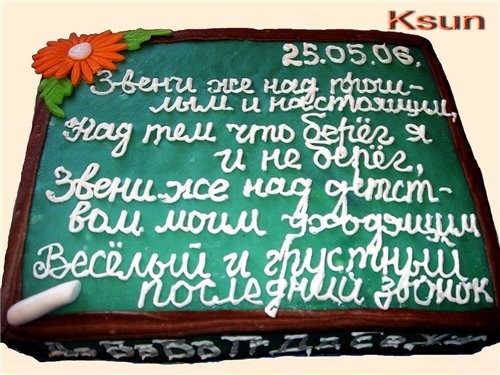 Ksun
25.05.06.
Звени же над прош-
лым и настоящим,
Над тем что берёг я
и не берёг,
Звени же над детст-
вом моим уходящим
Весёлый и грустный
последний звонок